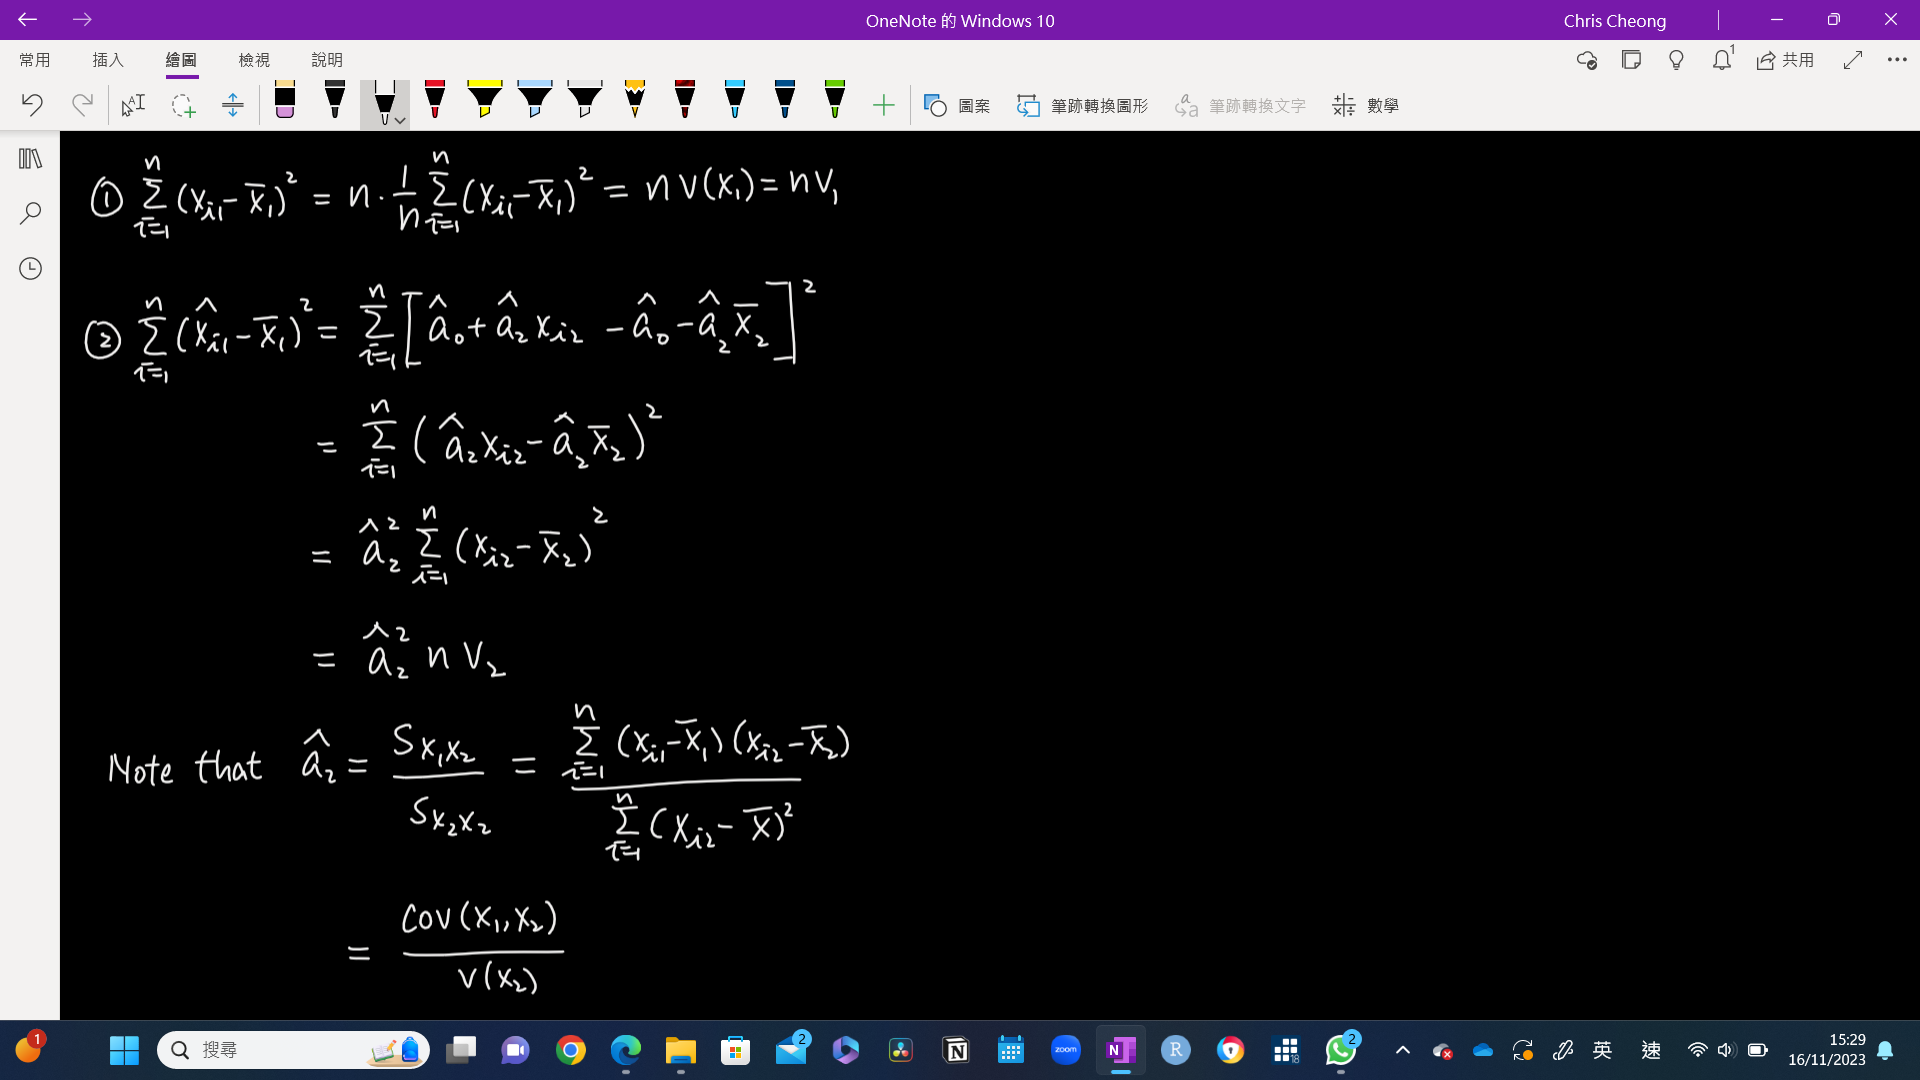 OneNote 的 Windows 10
Chris Cheong
常用 插入 繪圖 檢視 說明
1
共用
圖案 筆跡轉換圖形 筆跡轉換文字 數學
① \sum_{i=1}^{n} (x_{i1} - \bar{x}_1)^2 = n \cdot \frac{1}{n} \sum_{i=1}^{n} (x_{i1} - \bar{x}_1)^2 = n V(x_1) = n V_1
② \sum_{i=1}^{n} (\hat{x}_{i1} - \bar{x}_1)^2 = \sum_{i=1}^{n} [\hat{a}_0 + \hat{a}_2 x_{i2} - \hat{a}_0 - \hat{a}_2 \bar{x}_2]^2
= \sum_{i=1}^{n} (\hat{a}_2 x_{i2} - \hat{a}_2 \bar{x}_2)^2
= \hat{a}_2^2 \sum_{i=1}^{n} (x_{i2} - \bar{x}_2)^2
= \hat{a}_2^2 n V_2
Note that \hat{a}_2 = \frac{S_{x_1 x_2}}{S_{x_2 x_2}} = \frac{\sum_{i=1}^{n} (x_{i1} - \bar{x}_1)(x_{i2} - \bar{x}_2)}{\sum_{i=1}^{n} (x_{i2} - \bar{x})^2}
= \frac{Cov(x_1, x_2)}{V(x_2)}
1
搜尋
2
zoom
N
R
18
2
英 速
15:29
16/11/2023